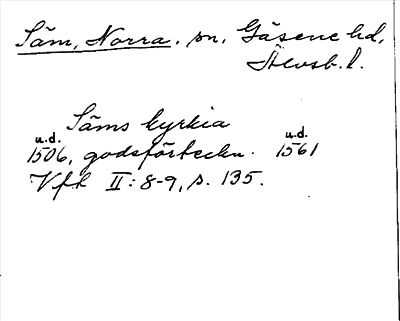 Säm, Norra. sn, Gäsene hd,
Älvsb. l.
Säms kyrkia
u.d. u.d.
1506, godsförteckn. 1561
Vfk II: 8-9, s. 135.